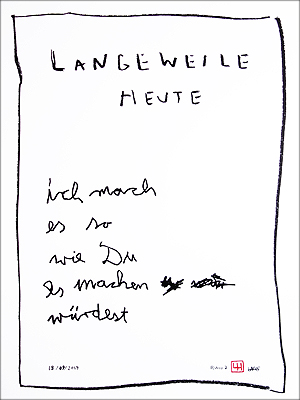 LANGEWEILE
HEUTE
ich mach
es so
wie Du
es machen
würdest